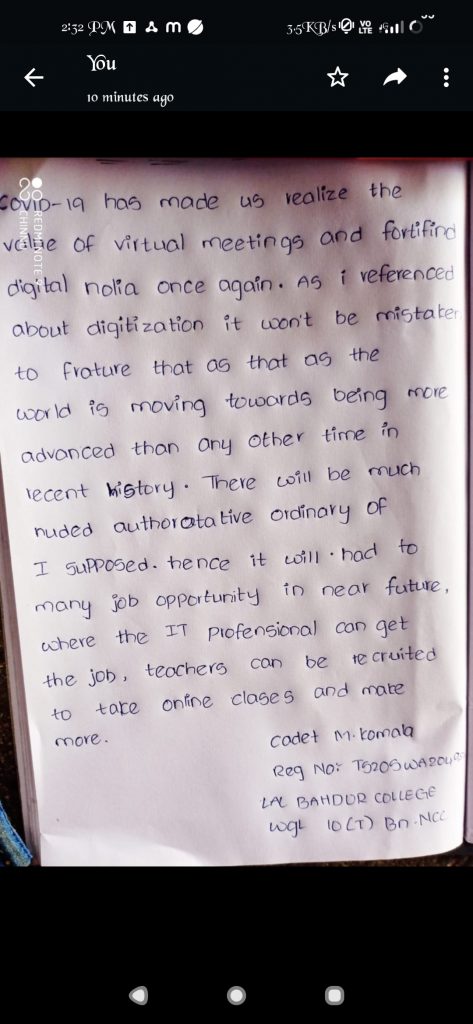 2:32 PM
3.5KB/s VO LTE 4G
You
10 minutes ago
COVID-19 has made us realize the
value of virtual meetings and fortifind
digital nolia once again. As i referenced
about digitization it won't be mistaken
to frature that as that as the
world is moving towards being more
advanced than any other time in
recent history. There will be much
nuded authoratative ordinary of
I supposed. hence it will . had to
many job opportunity in near future,
where the IT professional can get
the job, teachers can be recruited
to take online clases and make
more.
Cadet M. Komala
Reg No:
LAL BAHDUR COLLEGE
WGL 10(T) Bn. NCC
REDMI NOTE